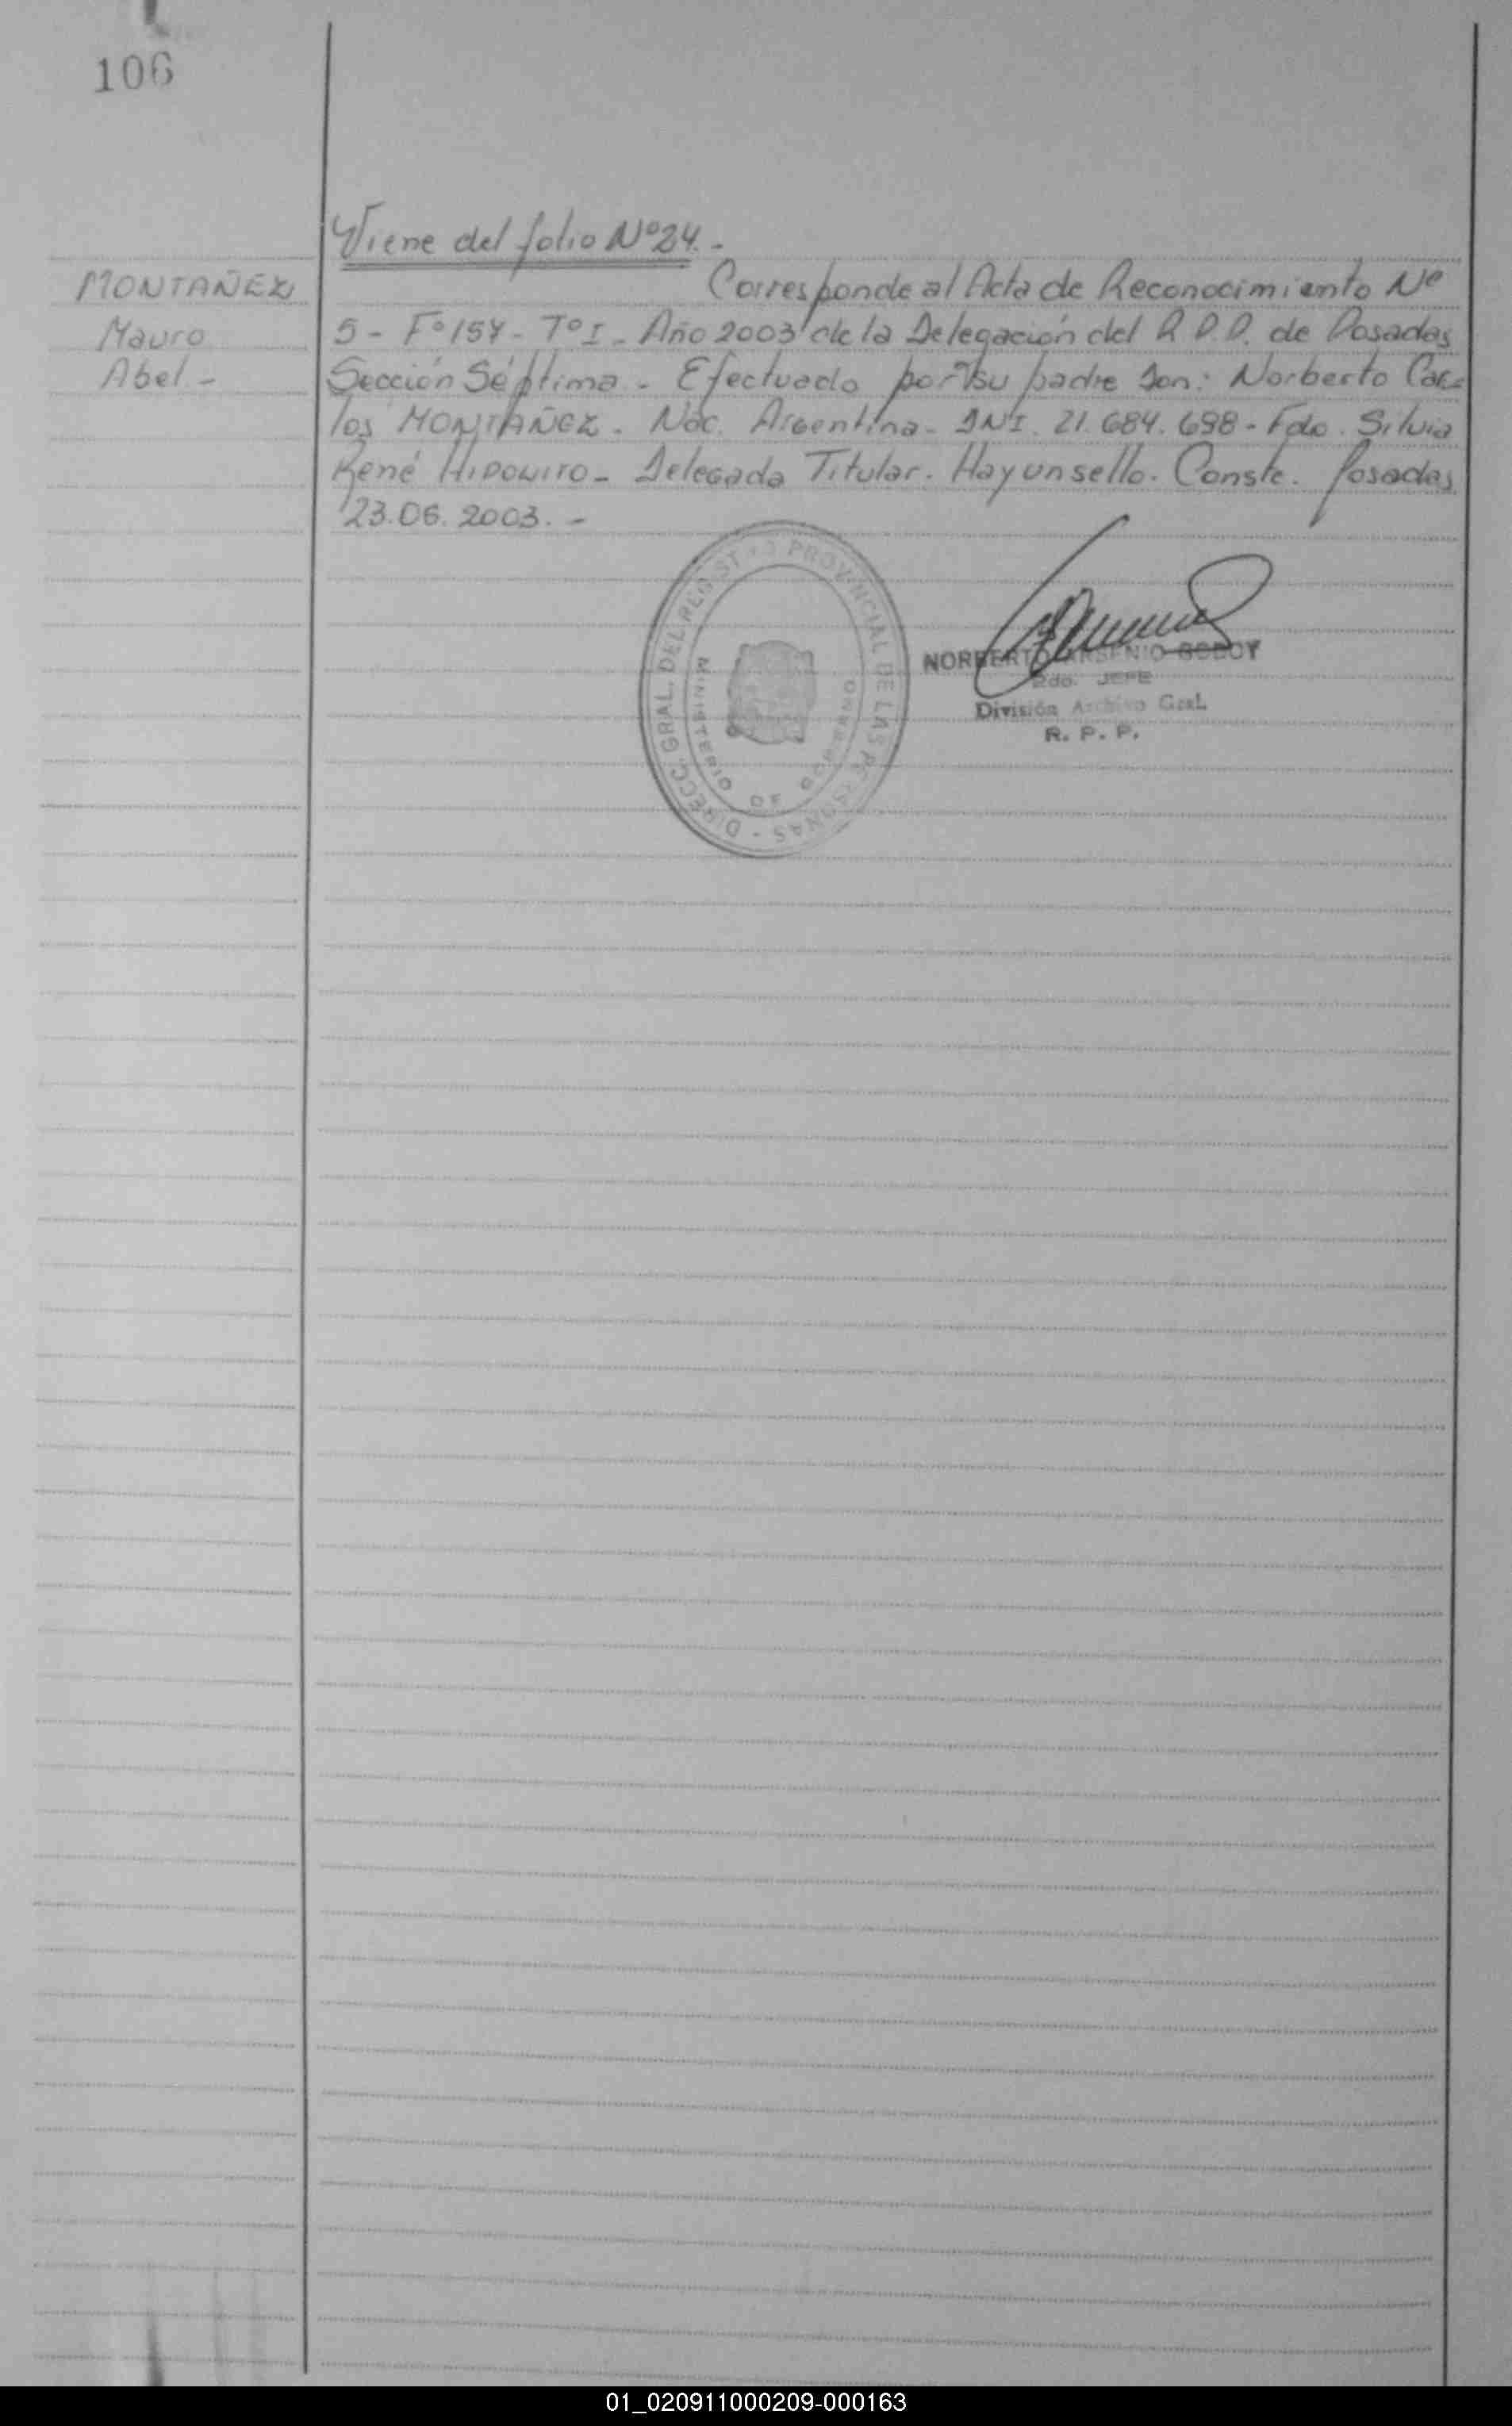 106
Viene del folio Nº 24.-
MONTAÑEZ
Mauro
Abel.-
Corresponde al Acta de Reconocimiento Nº
5 - Fº 154 - Tº I - Año 2003 de la Delegación del R.P.P. de Posadas
Sección Séptima - Efectuado por su padre Don: Norberto Car=
los MONTAÑEZ. Nac. Argentina - DNI. 21.684.698 - Fdo. Silvia
René HIPOLITO - Delegada Titular. Hay un sello. Conste. Posadas
23.06.2003.-
DIRECC. GRAL. DEL REGIST PROVINCIAL DE LAS PERSONAS -
MINISTERIO DE GOBIERNO
NORBERTO ARSENIO GODOY
2do. JEFE
División Archivo Gral.
R. P. P.
01_020911000209-000163